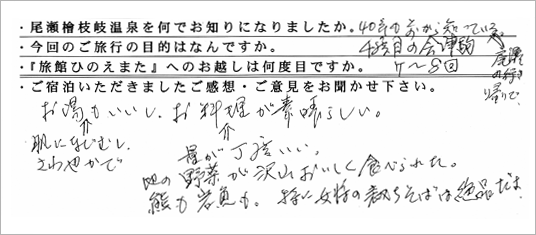 ・尾瀬檜枝岐温泉を何でお知りになりましたか。40年もまえから知っている
・今回のご旅行の目的はなんですか。4度目の会津駒
・『旅館ひのえまた』へのお越しは何度目ですか。7〜8回
尾瀬の行き帰りで、
・ご宿泊いただきましたご感想・ご意見をお聞かせ下さい。
お湯もいいし、お料理が素晴らしい。
肌になじむし、
さわやかで
量が丁度いい、
地の野菜が沢山おいしく食べられた。
熊も岩魚も。特に女将の裁ちそばは絶品だよ